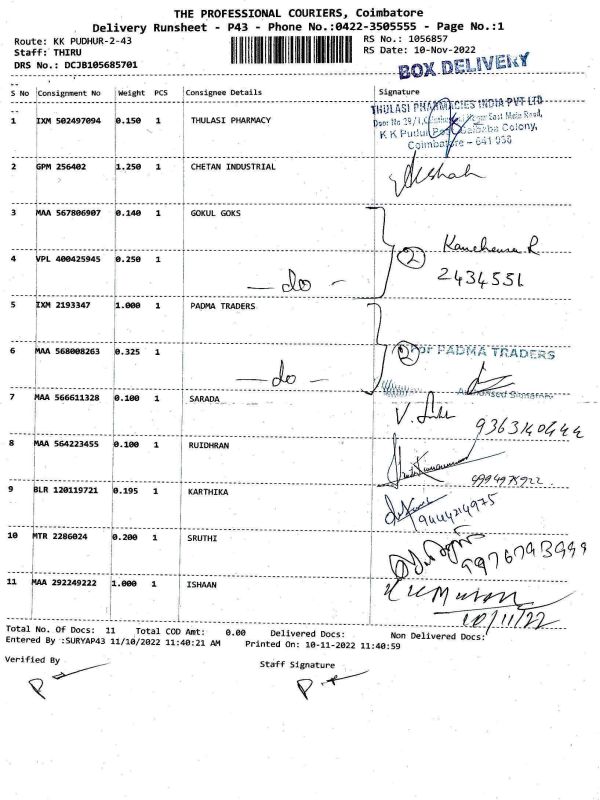 THE PROFESSIONAL COURIERS, Coimbatore
Delivery Runsheet - P43 - Phone No.:0422-3505555 - Page No.:1
Route: KK PUDHUR-2-43
RS No.: 1056857
Staff: THIRU
RS Date: 10-Nov-2022
DRS No.: DCJB105685701
BOX DELIVERY
S No Consignment No Weight PCS Consignee Details Signature
1 IXM 502497094 0.150 1 THULASI PHARMACY
THULASI PHARMACIES INDIA PVT LTD
East Main Road,
Colony,
Coimbatore - 641 038
2 GPM 256402 1.250 1 CHETAN INDUSTRIAL
3 MAA 567806907 0.140 1 GOKUL GOKS
4 VPL 400425945 0.250 1
- do -
2
2434551
5 IXM 2193347 1.000 1 PADMA TRADERS
6 MAA 568008263 0.325 1
- do -
2
For PADMA TRADERS
Authorised Signatory
7 MAA 566611328 0.100 1 SARADA
8 MAA 564223455 0.100 1 RUIDHRAN
9 BLR 120119721 0.195 1 KARTHIKA
9444214975
10 MTR 2286024 0.200 1 SRUTHI
11 MAA 292249222 1.000 1 ISHAAN
10/11/22
Total No. Of Docs: 11 Total COD Amt: 0.00 Delivered Docs: Non Delivered Docs:
Entered By :SURYAP43 11/10/2022 11:40:21 AM Printed On: 10-11-2022 11:40:59
Verified By Staff Signature